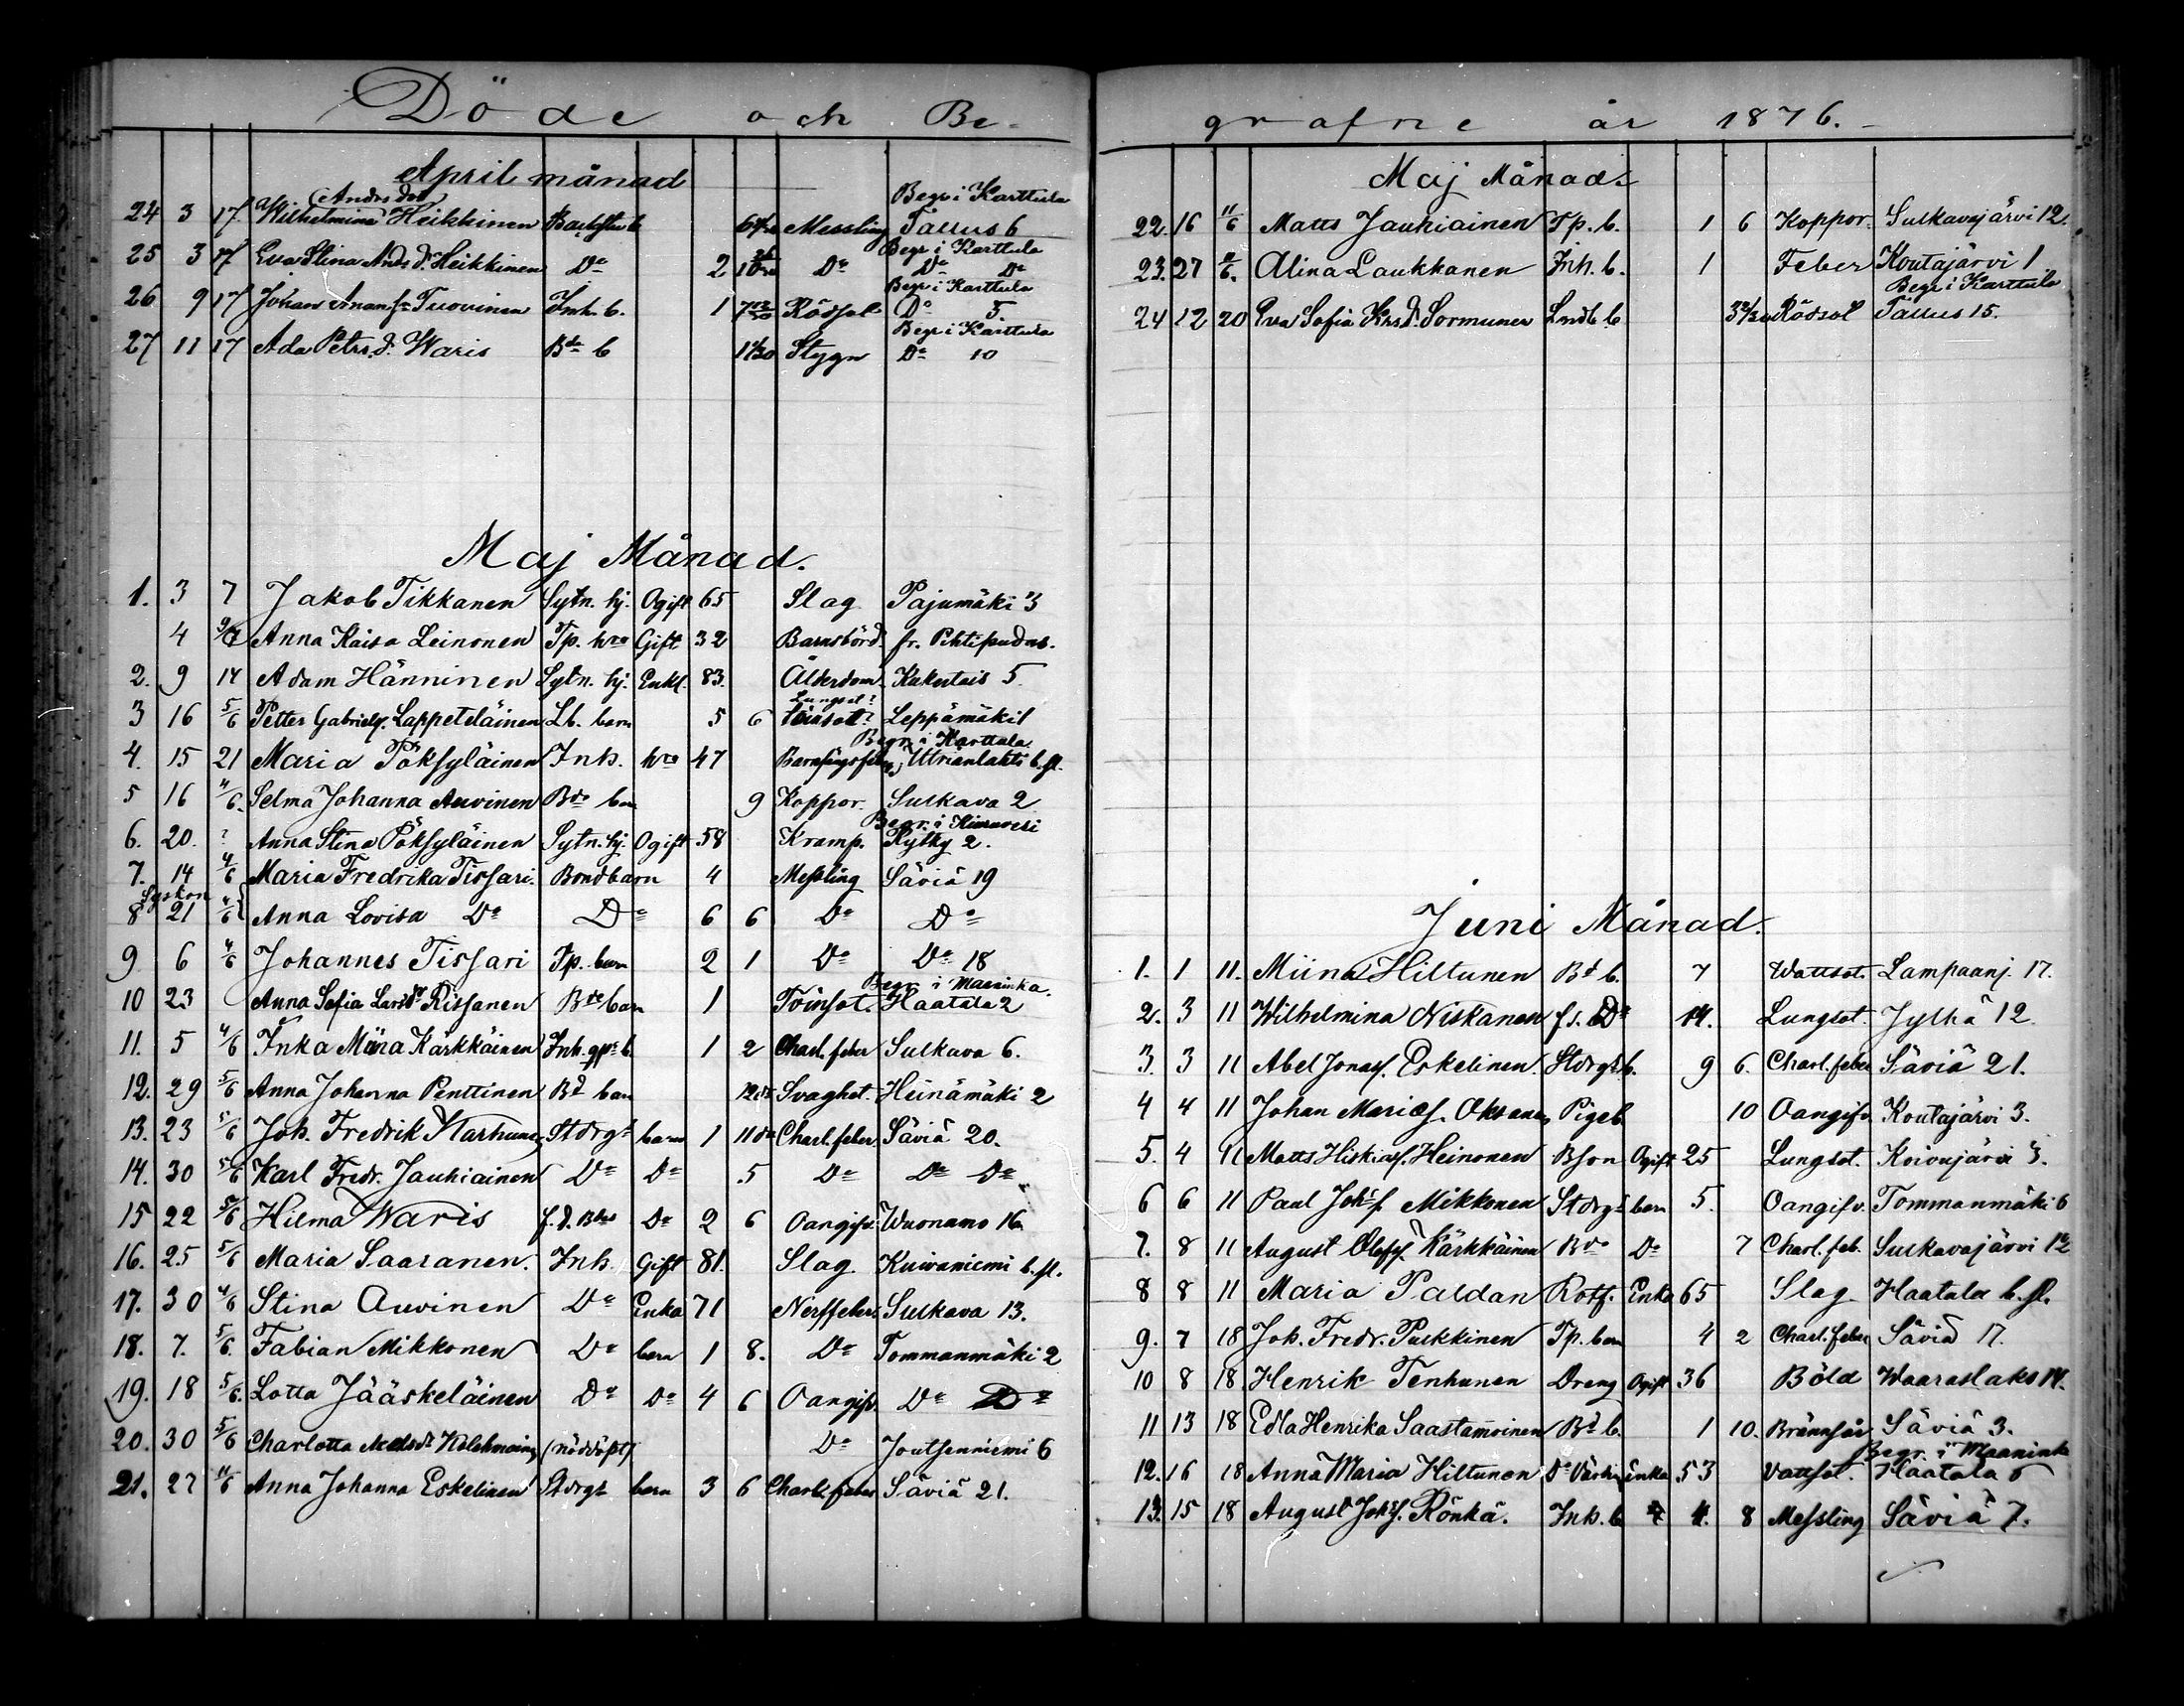 Döde och Be-
April månad
Andrs dot Begr i Karttula
24 3 17. Wilhelmina Heikkinen Backstu b Messling Tallus 6
Begr i Karttula
25 3 17 Eva Stina Ands d. Heikkinen Do 2 Do Do Do
Begr i Karttula
26 9 17 Johan Tuovinen Inh. b. 1 Rödsot Do 5.
Begr i Karttula
27 11 17 Ada Petrs. d. Waris Bde b Stygn Do 10
Maj Månad.
1. 3 7 Jakob Tikkanen Sytn. hj. Ogift 65 Slag Pajumäki 3
4 Anna Kaisa Leinonen Tp. hru Gift 32 Barnsbörd. fr. Pihtipudas.
2. 9 14 Adam Hänninen Sytn. hj. Enkl. 83. Ålderdom. Kukertais 5
Lungsot?
3 16 5/6 Petter Gabriels. Lappeteläinen Lb. barn 5 6 Leppämäki 1
Begr. i Karttula
4. 15 21 Maria Pöksyläinen Inh. hru 47 Barnsängsfeber Utrianlahti b. fl.
5 16 4/6. Selma Johanna Auvinen Bde barn 9 Koppor. Sulkava 2
Begr. i Kiuruvesi
6. 20. ? Anna Stina Pöksyläinen Sytn. hj. Ogift 58 Kramp. Rytky 2.
7. 14 4/6 Maria Fredrika Tissari. Bondbarn 4 Messling Säviä 19
Syskon
8 21 4/6 Anna Lovisa Do Do 6 6 Do Do
9 6 4/6 Johannes Tissari Tp. barn 2 1 Do Do 18
Begr. i Maaninka.
10 23 Anna Sofia Larsdr Rissanen Bde barn 1 Tvinsot. Haatala 2
11. 5 4/6 Inka Miina Kärkkäinen Inh. b. 1 2 Charl. feber Sulkava 6.
12. 29 5/6 Anna Johanna Penttinen Bd barn Svaghet. Heinämäki 2
13. 23 5/6 Joh. Fredrik Karhunen Stdrgs barn 1 Charl. feber. Säviä 20.
14. 30 5/6 Karl Fredr. Jauhiainen Do Do 5 Do Do Do
15 22 5/6 Hilma Waris f. d. Bdes Do 2 6 Oangifv. Wuonamo 16
16. 25 5/6 Maria Saaranen. Inh. Gift 81. Slag Kuivaniemi b. fl.
17. 30 4/6 Stina Auvinen Do Enka 71 Nerffeber. Sulkava 13.
18. 7. 5/6. Fabian Mikkonen Do barn 1 8. Do Tommanmäki 2
19. 18 5/6. Lotta Jääskeläinen Do Do 4 6 Oangifv. Do Do
20. 30 5/6 Charlotta Kolehmainen (nöddöpt) Do Joutsenniemi 6
21. 27 11/6 Anna Johanna Eskelinen Stdrgs barn 3 6 Charl. feber Säviä 21.
grafne år 1876.
Maj Månad.
22. 16 11/6 Matts Jauhiainen Tp. b. 1 6 Koppor. Sulkavajärvi 12.
23. 27 Alina Laukkanen Inh. b. 1 Feber Koutajärvi 1
Begr i Karttula
24 12 20 Eva Sofia d. Sormunen Lndb. b Rödsot Tallus 15.
Juni Månad.
1. 1 11. Miina Hiltunen Bd b. 7 Wattsot. Lampaanj. 17.
2. 3 11 Wilhelmina Niskanen f. d. 14. Lungsot. Jylhä 12.
3. 3 11 Abel Jonass. Eskelinen. Stdrgs b. 9 6. Charl. feber Säviä 21.
4 4 11 Johan Marias. Oksanen Pigeb. 10 Oangifv. Koutajärvi 3.
5. 4 11 Matts Hiskias. Heinonen Bson Ogift 25 Lungsot. Koivujärvi 3.
6 6 11 Paul Joh:s. Mikkonen Stdrgs barn 5. Oangifv. Tommanmäki 6
7. 8 11 August Olofs. Kärkkäinen Bde Do 7 Charl. feb. Sulkavajärvi 12
8 8 11 Maria Paldan Rotf. Enka 65 Slag Haatala b. fl.
9. 7 18 Joh. Fredr. Pulkkinen Tp. barn 4 2 Charl. feber Säviä 17.
10 8 18. Henrik Tenhunen Dreng Ogift 36 Böld Waaraslaks 14.
11 13 18 Edla Henrika Saastamoinen Bd b. 1 10. Brännsår Säviä 3.
Begr. i Maaninka
12. 16 18 Anna Maria Hiltunen enka 53 Vattsot. Haatala
13. 15 18 August Joh:s. Rönkä. Inh. b 4. 8 Messling Säviä 7.